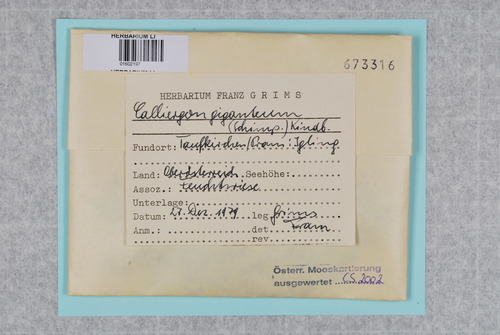 HERBARIUM LI
673316
HERBARIUM FRANZ GRIMS
Calliergon giganteum
(Schimp.) Kindb.
Fundort: Taufkirchen/Pram: Igling
Land: Oberösterreich Seehöhe:
Assoz.: Feuchtwiese
Unterlage:
Datum: 27. Dez. 1979 leg. Grims
Anm.: det.
rev.
Österr. Mooskartierung
ausgewertet CS 2002